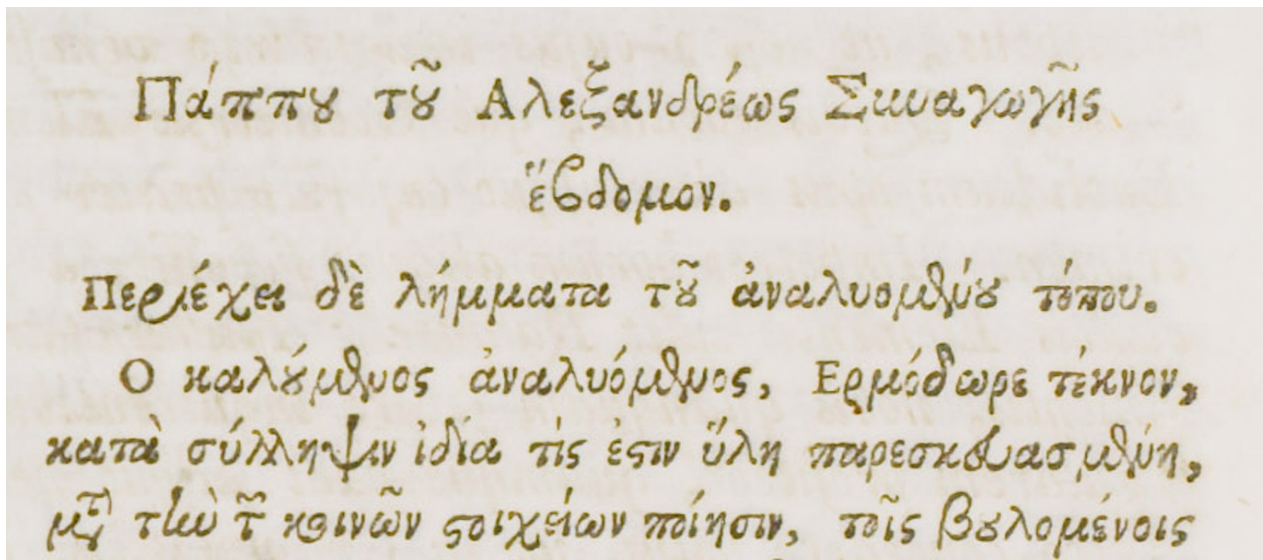 Πάππου τοῦ Ἀλεξανδρέως Συναγωγῆς
ἕβδομον.
Περιέχει δὲ λήμματα τοῦ ἀναλυομένου τόπου.
Ο καλούμενος ἀναλυόμενος, Ερμόδωρε τέκνον,
κατὰ σύλληψιν ἰδία τίς ἐστιν ὕλη παρεσκευασμένη,
μετὰ τὴν τῶν κοινῶν στοιχείων ποίησιν, τοῖς βουλομένοις